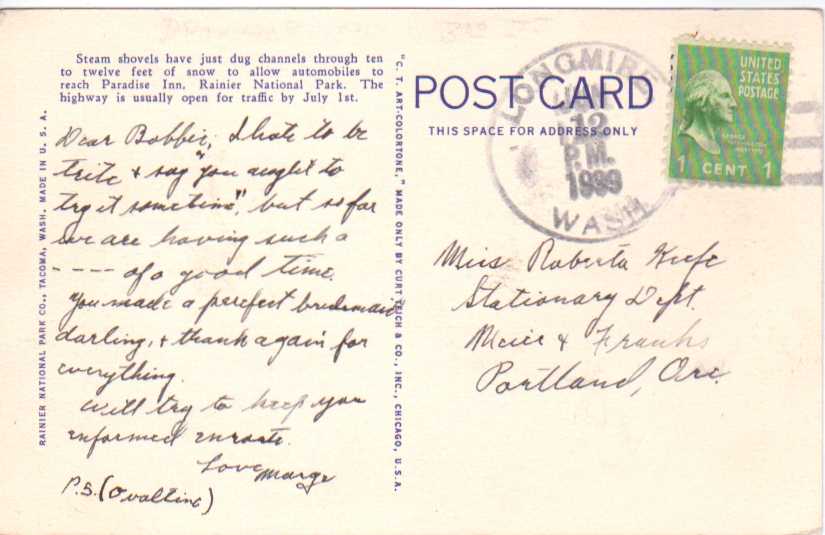 Steam shovels have just dug channels through ten
to twelve feet of snow to allow automobiles to
reach Paradise Inn, Rainier National Park. The
highway is usually open for traffic by July 1st.
Dear Bobbie; I hate to be
trite & say "you aught to
try it sometime", but so far
we are having such a
---- of a good time.
You made a perefect bridesmaid
darling, & thank again for
everything.
Will try to keep you
informed enroute.
Love Marge
P.S. (Ovaltine)
RAINIER NATIONAL PARK CO., TACOMA, WASH. MADE IN U. S. A.
"C. T. ART-COLORTONE," MADE ONLY BY CURT TEICH & CO., INC., CHICAGO, U.S.A.
POST CARD
THIS SPACE FOR ADDRESS ONLY
LONGMIRE
JUN
12
P.M.
1939
WASH.
UNITED
STATES
POSTAGE
GEORGE
WASHINGTON
1 CENT 1
Miss Roberta Keefe
Stationary Dept.
Meier & Franks
Portland, Ore.